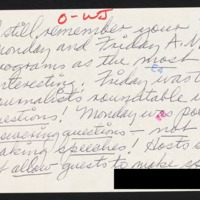 O-WJ
I still remember your
Monday and Friday A.M.
programs as the most
interesting. Friday was the
journalists roundtable
questions! Monday was
answering questions — not
making speeches! Hosts
not allow guests to make